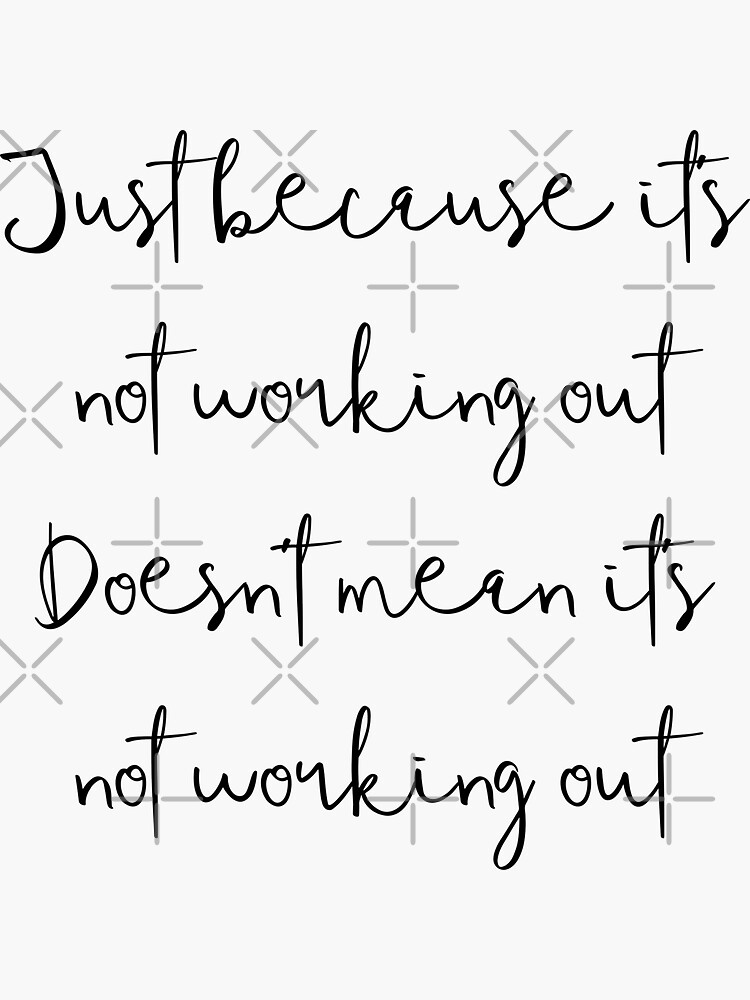 Just because it's
not working out
Doesn't mean it's
not working out